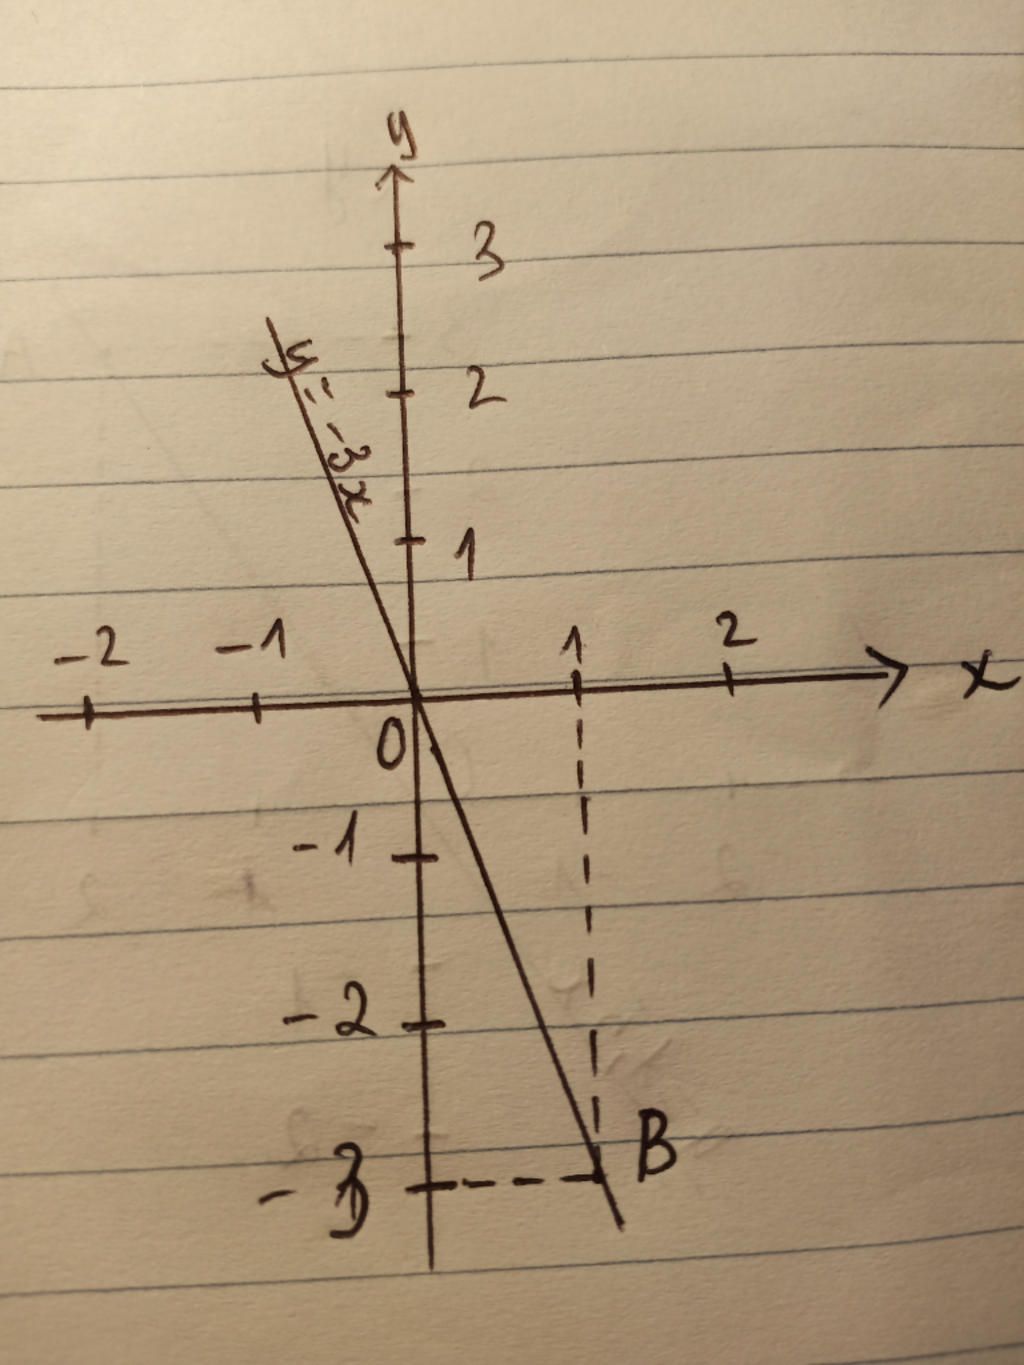 y
3
y = -3x
2
1
-2 -1 1 2 x
0
-1
-2
B
-3